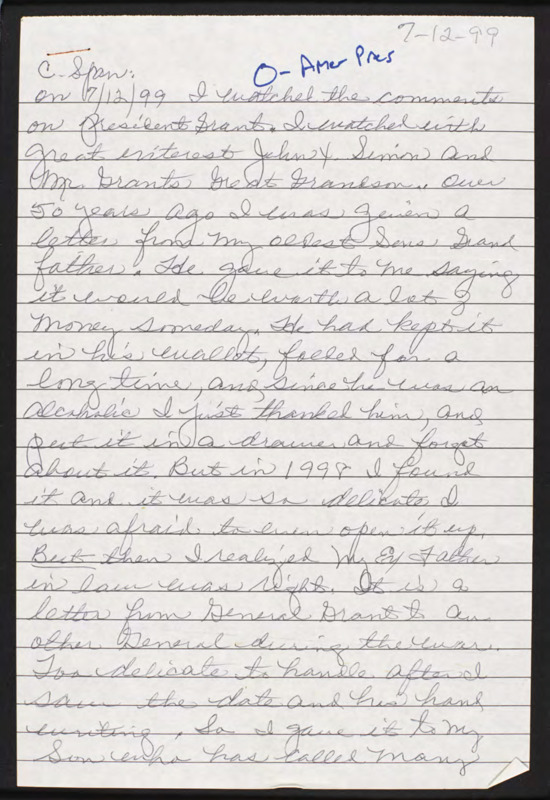 7-12-99
O-Amer Pres
C. Span:
on 7/12/99 I watched the comments
on President Grant. I watched with
great interest John Y. Simon and
Mr. Grants Great Grandson. Over
50 years ago I was given a
letter from my oldest Sons Grand
father. He gave it to me saying
it would be worth a lot of
money someday. He had kept it
in his wallet, folded for a
long time, and since he was an
alcoholic I just thanked him, and
put it in a drawer and forgot
about it. But in 1998 I found
it and it was so delicate I
was afraid to even open it up.
But then I realized my Ex Father
in law was right. It is a
letter from General Grant to an
other General during the war.
Too delicate to handle after I
saw the date and his hand
writing, So I gave it to my
Son who has called many